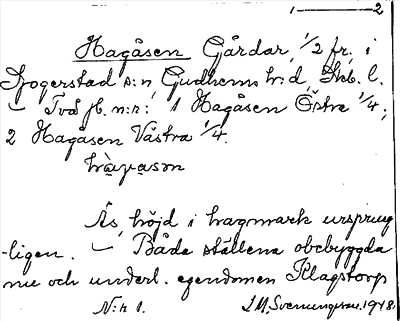 1 — 2
Hagåsen Gårdar, 1/2 fr. i
Sjogerstad s:n, Gudhems h:d, Skb. l.
— Två jb. n:r: 1 Hagåsen Östra 1/4;
2 Hagåsen Västra 1/4.
Ås, höjd i hagmark ursprung
-ligen. — Båda ställena obebyggda
nu och underl. egendomen Klagstorp
N:r 1. J.M. Svenungsson. 1948.